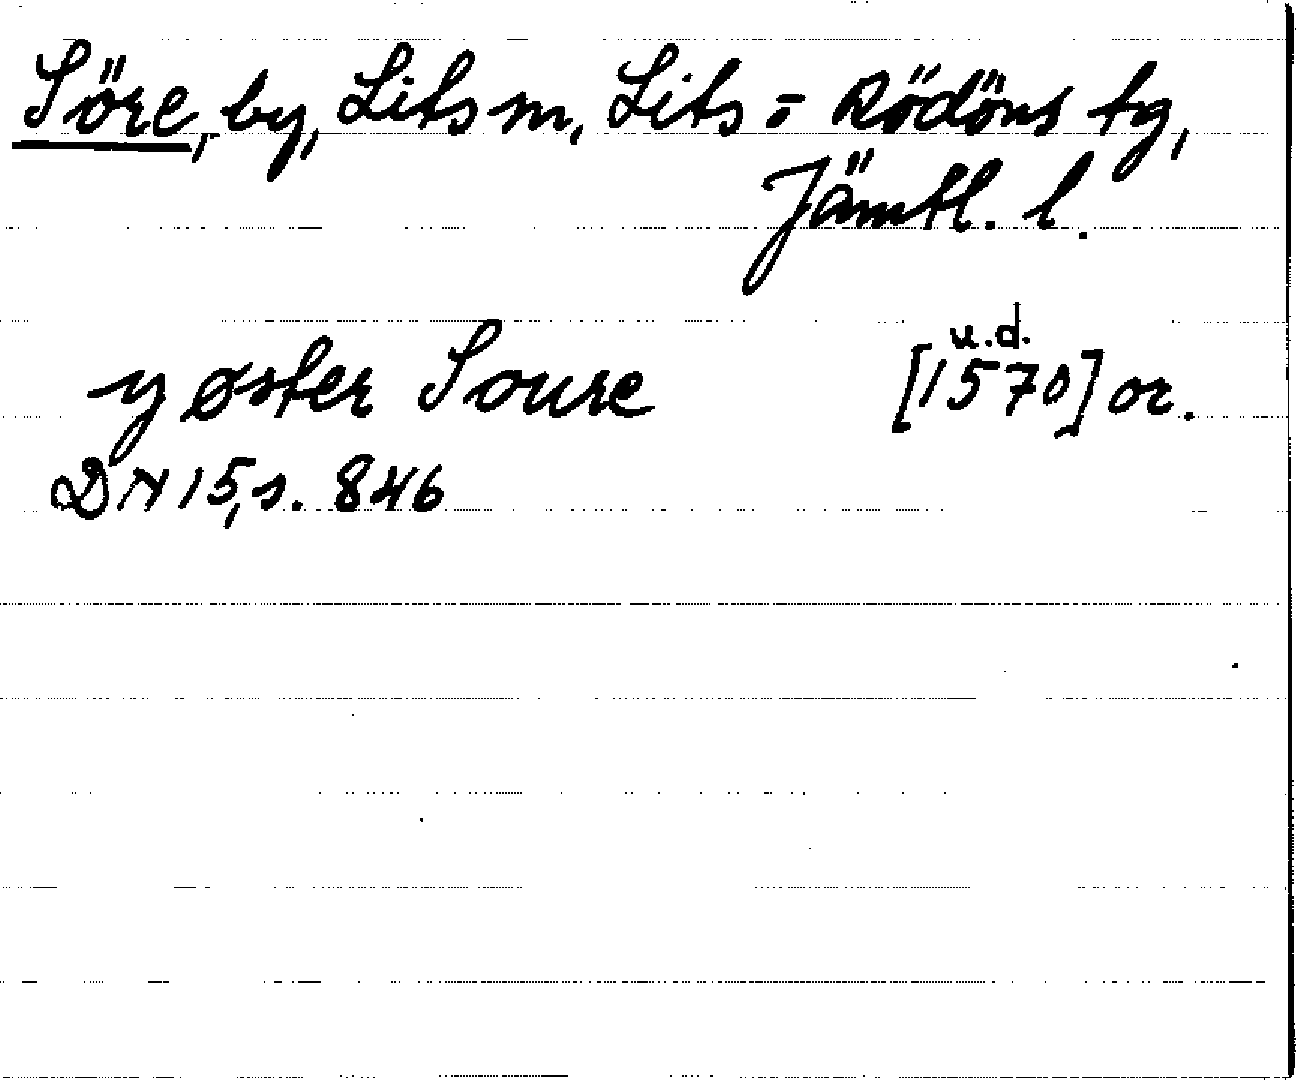 Söre, by, Lits sn, Lits = Rödöns tg,
Jämtl. l.
y øster Soure [1570] or.
u.d.
DN 15, s. 846